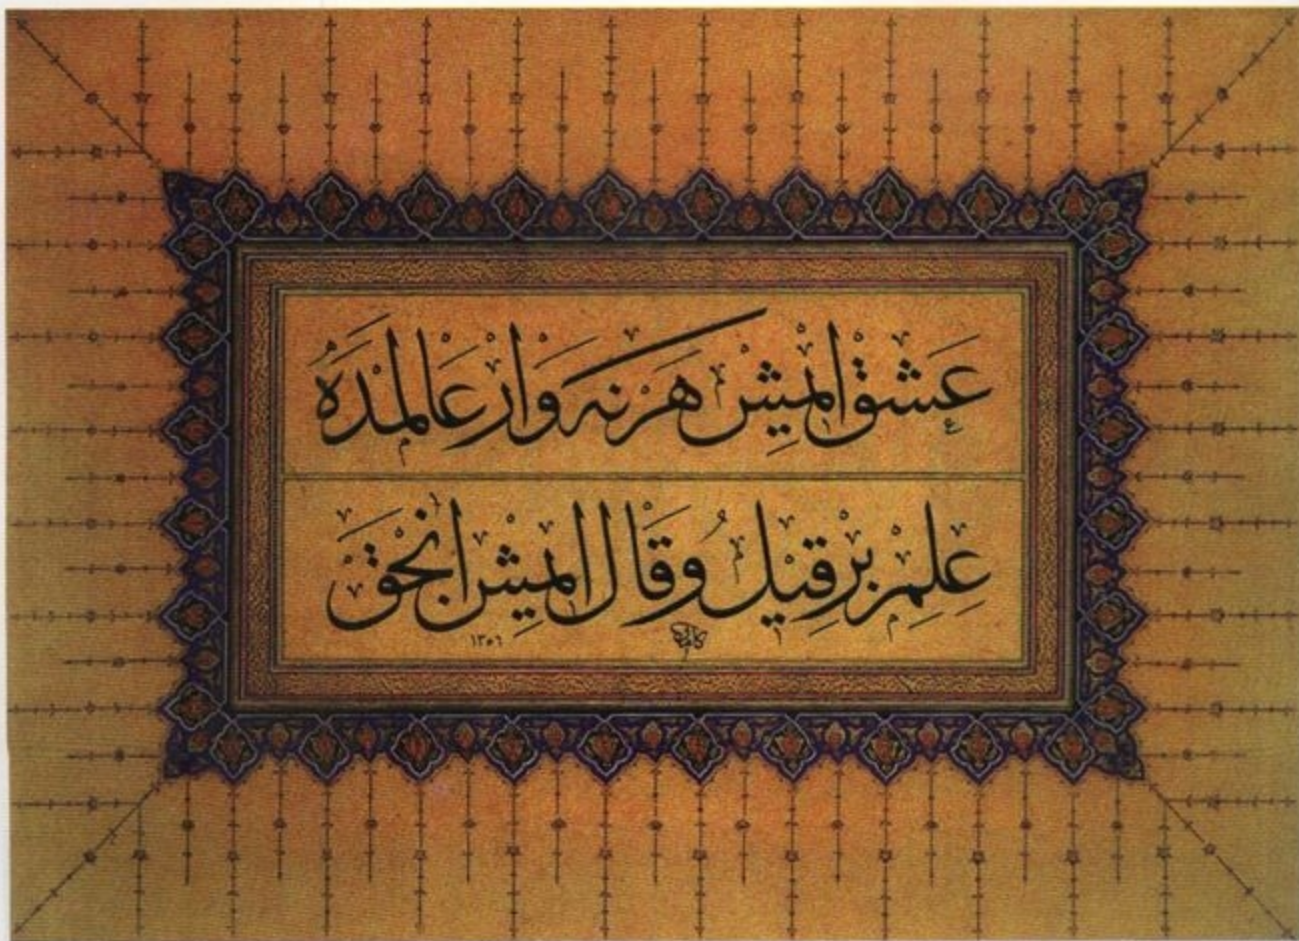 عشق ايمش هرنه وار عالمده
علم بر قيل وقال ايمش انجق
١٣٥٦